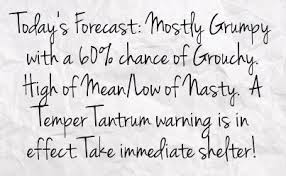 Today's Forecast: Mostly Grumpy
with a 60% chance of Grouchy.
High of Mean/Low of Nasty. A
Temper Tantrum warning is in
effect. Take immediate shelter!